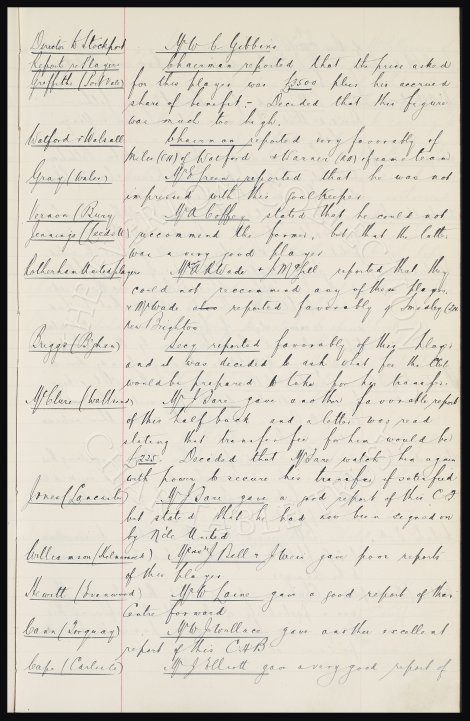 Director to Stockport Mr W C Gibbins
Report re Players Chairman reported that the price asked
Griffiths (Port Vale) for this player was £2500 plus his accrued
share of benefit. - Decided that this figure
was much too high.
Watford v Walsall Chairman reported very favorably of
(CH) of Watford & Warner (RO) of same team
Gray (Wales) Mr E Green reported that he was not
impressed with this Goalkeeper
Vernon (Bury Mr A Coffey stated that he could not
Jennings (Leeds U) recommend the former, but that the latter
was a very good player
Rotherham United players Wade & J reported that they
could not recommend any of these players.
& Mr Wade also reported favorably of Smedley (
New Brighton
Briggs ( Secy reported favorably of this player
and it was decided to ask what fee the Club
would be prepared to take for his transfer.
McClure (Wallsend Mr J Sare gave another favorable report
of this half back and a letter was read
stating that transfer fee for him would be
£225. Decided that Mr Sare watch him again
with power to secure his transfer if satisfied
Jones (Lancaster) Mr J Sare gave a good report of this C F
but stated that he had now been signed on
by United
Williamson (Kilmarnock) J Bell & J Green gave poor reports
of this player
Hewitt ( Mr W Laine gave a good report of this
Centre forward
Cann (Torquay) Mr W J Wallace gave another excellent
report of this C H B
Cape (Carlisle) Mr J Elliott gave a very good report of